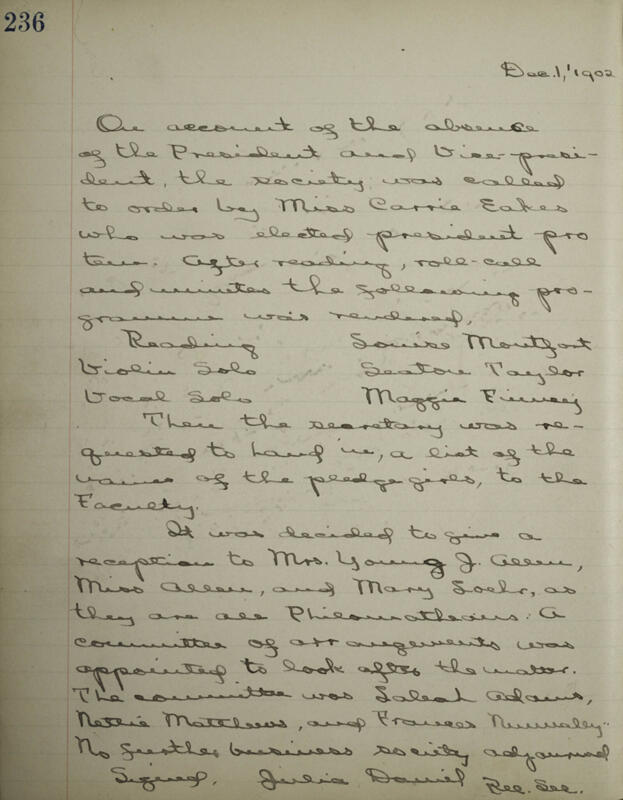 236
Dec. 1, '1902
On account of the absence
of the President and Vice-presi-
dent, the society was called
to order by Miss Carrie Eakes
who was elected president pro
tem. After reading, roll-call
and minutes the following pro-
gramme was rendered,
Reading Louise Montfort
Violin Solo Seaton Taylor
Vocal Solo Maggie Finney
Then the secretary was re-
quested to hand in, a list of the
names of the pledge girls, to the
Faculty.
It was decided to give a
reception to Mrs. Young J. Allen,
Miss Allen, and Mary Loehr, as
they are all Philomatheans. A
committee of arrangements was
appointed to look after the matter.
The committee was Adams,
Nettie Matthews, and Frances Nunnally.
No further business society adjourned
Signed, Julia Daniel Rec. Sec.